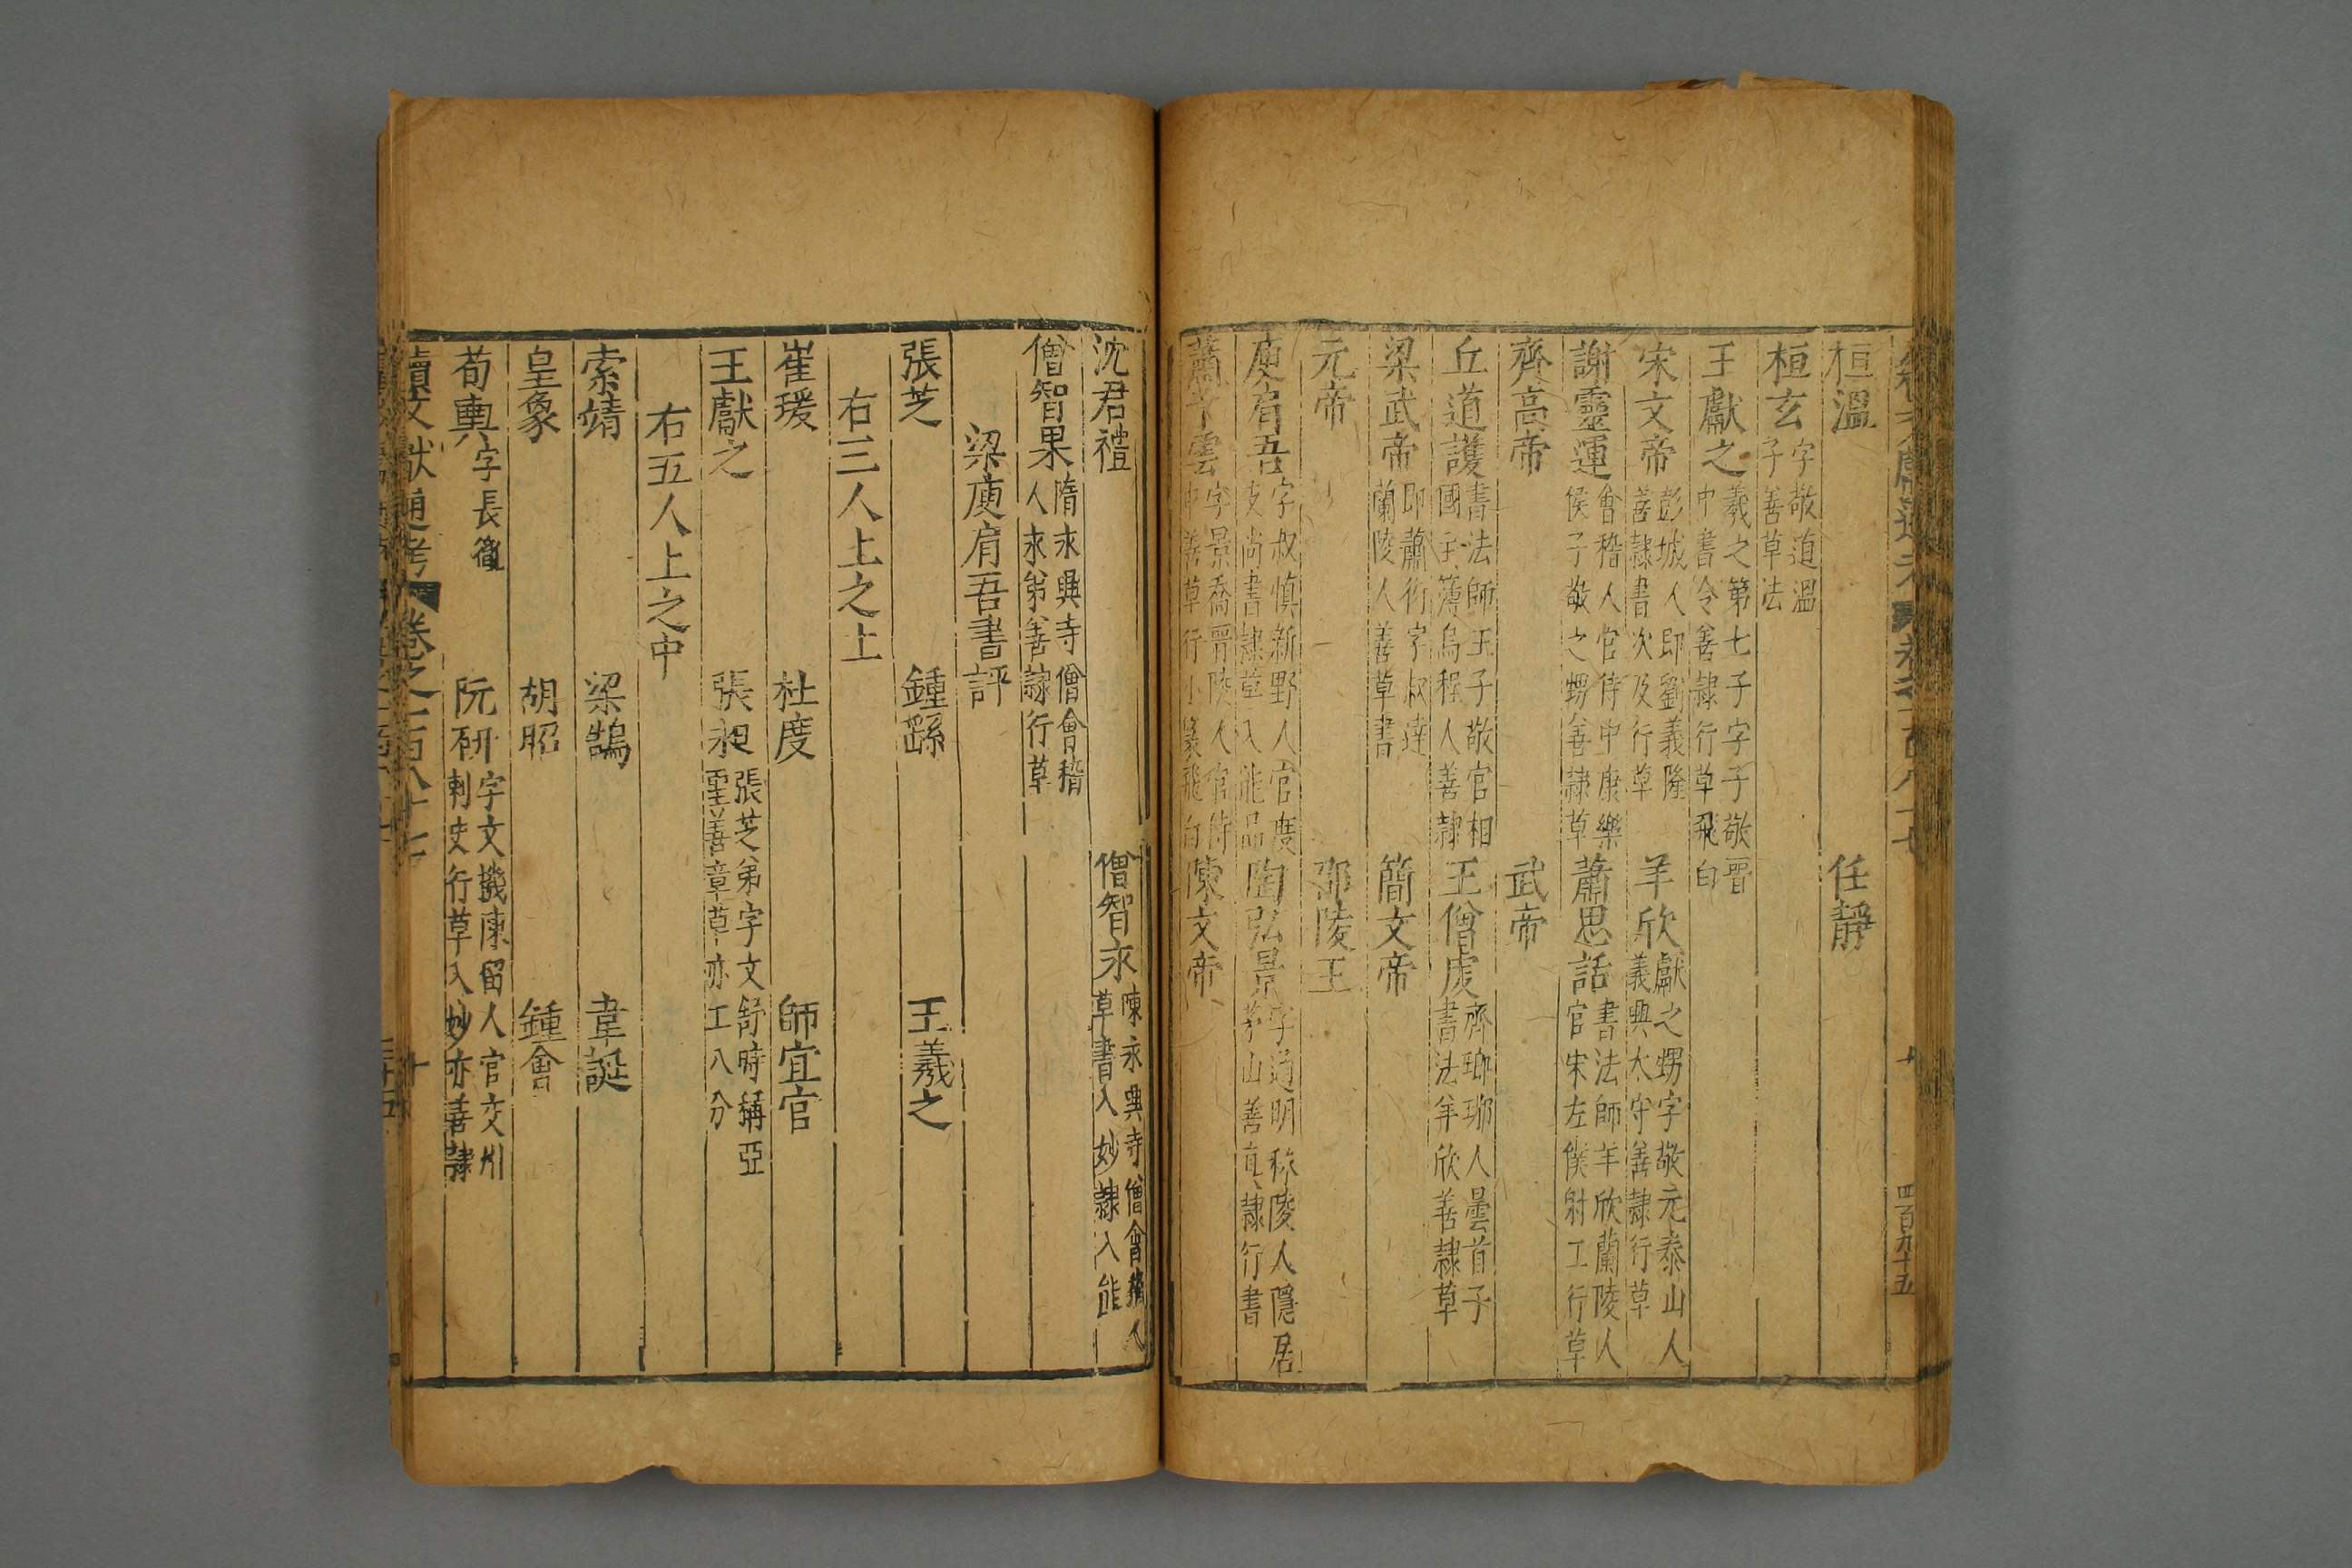 桓溫 任靜
桓玄 字敬道溫子善草法
王獻之 羲之第七子字子敬晉中書令善隸行草飛白
宋文帝 彭城人即劉義隆善隸書次及行草 羊欣 獻之甥字敬元泰山人義興太守善隸行草
謝靈運 會稽人官侍中康樂侯子敬之甥善隸草 蕭思話 書法師羊欣蘭陵人官宋左僕射工行草
齊高帝 武帝
丘道護 書法師王子敬官相國主簿烏程人善隸 王僧虔 齊瑯琊人曇首子書法羊欣善隸草
梁武帝 即蕭衍字叔達蘭陵人善草書 簡文帝
元帝 邵陵王
庾肩吾 字叔慎新野人官度支尚書隸草入能品 陶弘景 字通明秣陵人隱居茅山善真隸行書
蕭子雲 字景喬晉陵人官侍中善草行小篆飛白 陳文帝
四百九十五
沈君禮 僧智永 陳永興寺僧會稽人草書入妙隸入能
僧智果 隋永興寺僧會稽人永弟善隸行草
梁庾肩吾書評
張芝 鍾繇 王羲之
右三人上之上
崔瑗 杜度 師宜官
王獻之 張昶 張芝弟字文舒時稱亞聖善章草亦工八分
右五人上之中
索靖 梁鵠 韋誕
皇象 胡昭 鍾會
荀輿 字長 阮研 字文機陳留人官交州刺史行草入妙亦善隸
續文獻通考 卷之一百八十七 十